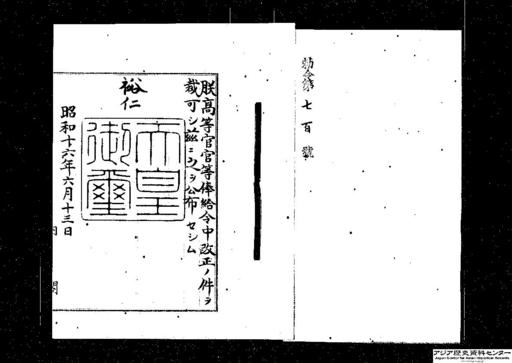 勅令第七百號
朕高等官官等俸給令中改正ノ件ヲ
裁可シ茲ニ之ヲ公布セシム
裕仁
天皇
御璽
昭和十六年六月十三日
アジア歴史資料センター
Japan Center for Asian Historical Records